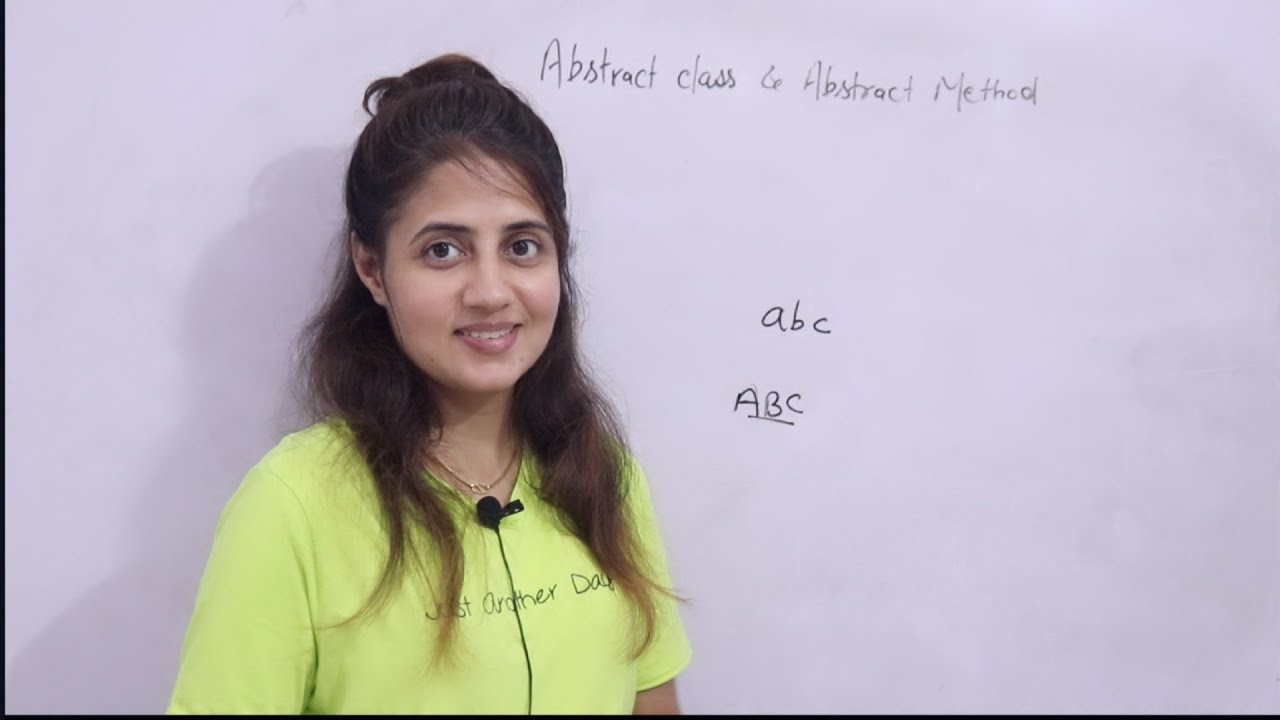 Abstract class & Abstract Method
abc
ABC
Just Another Day